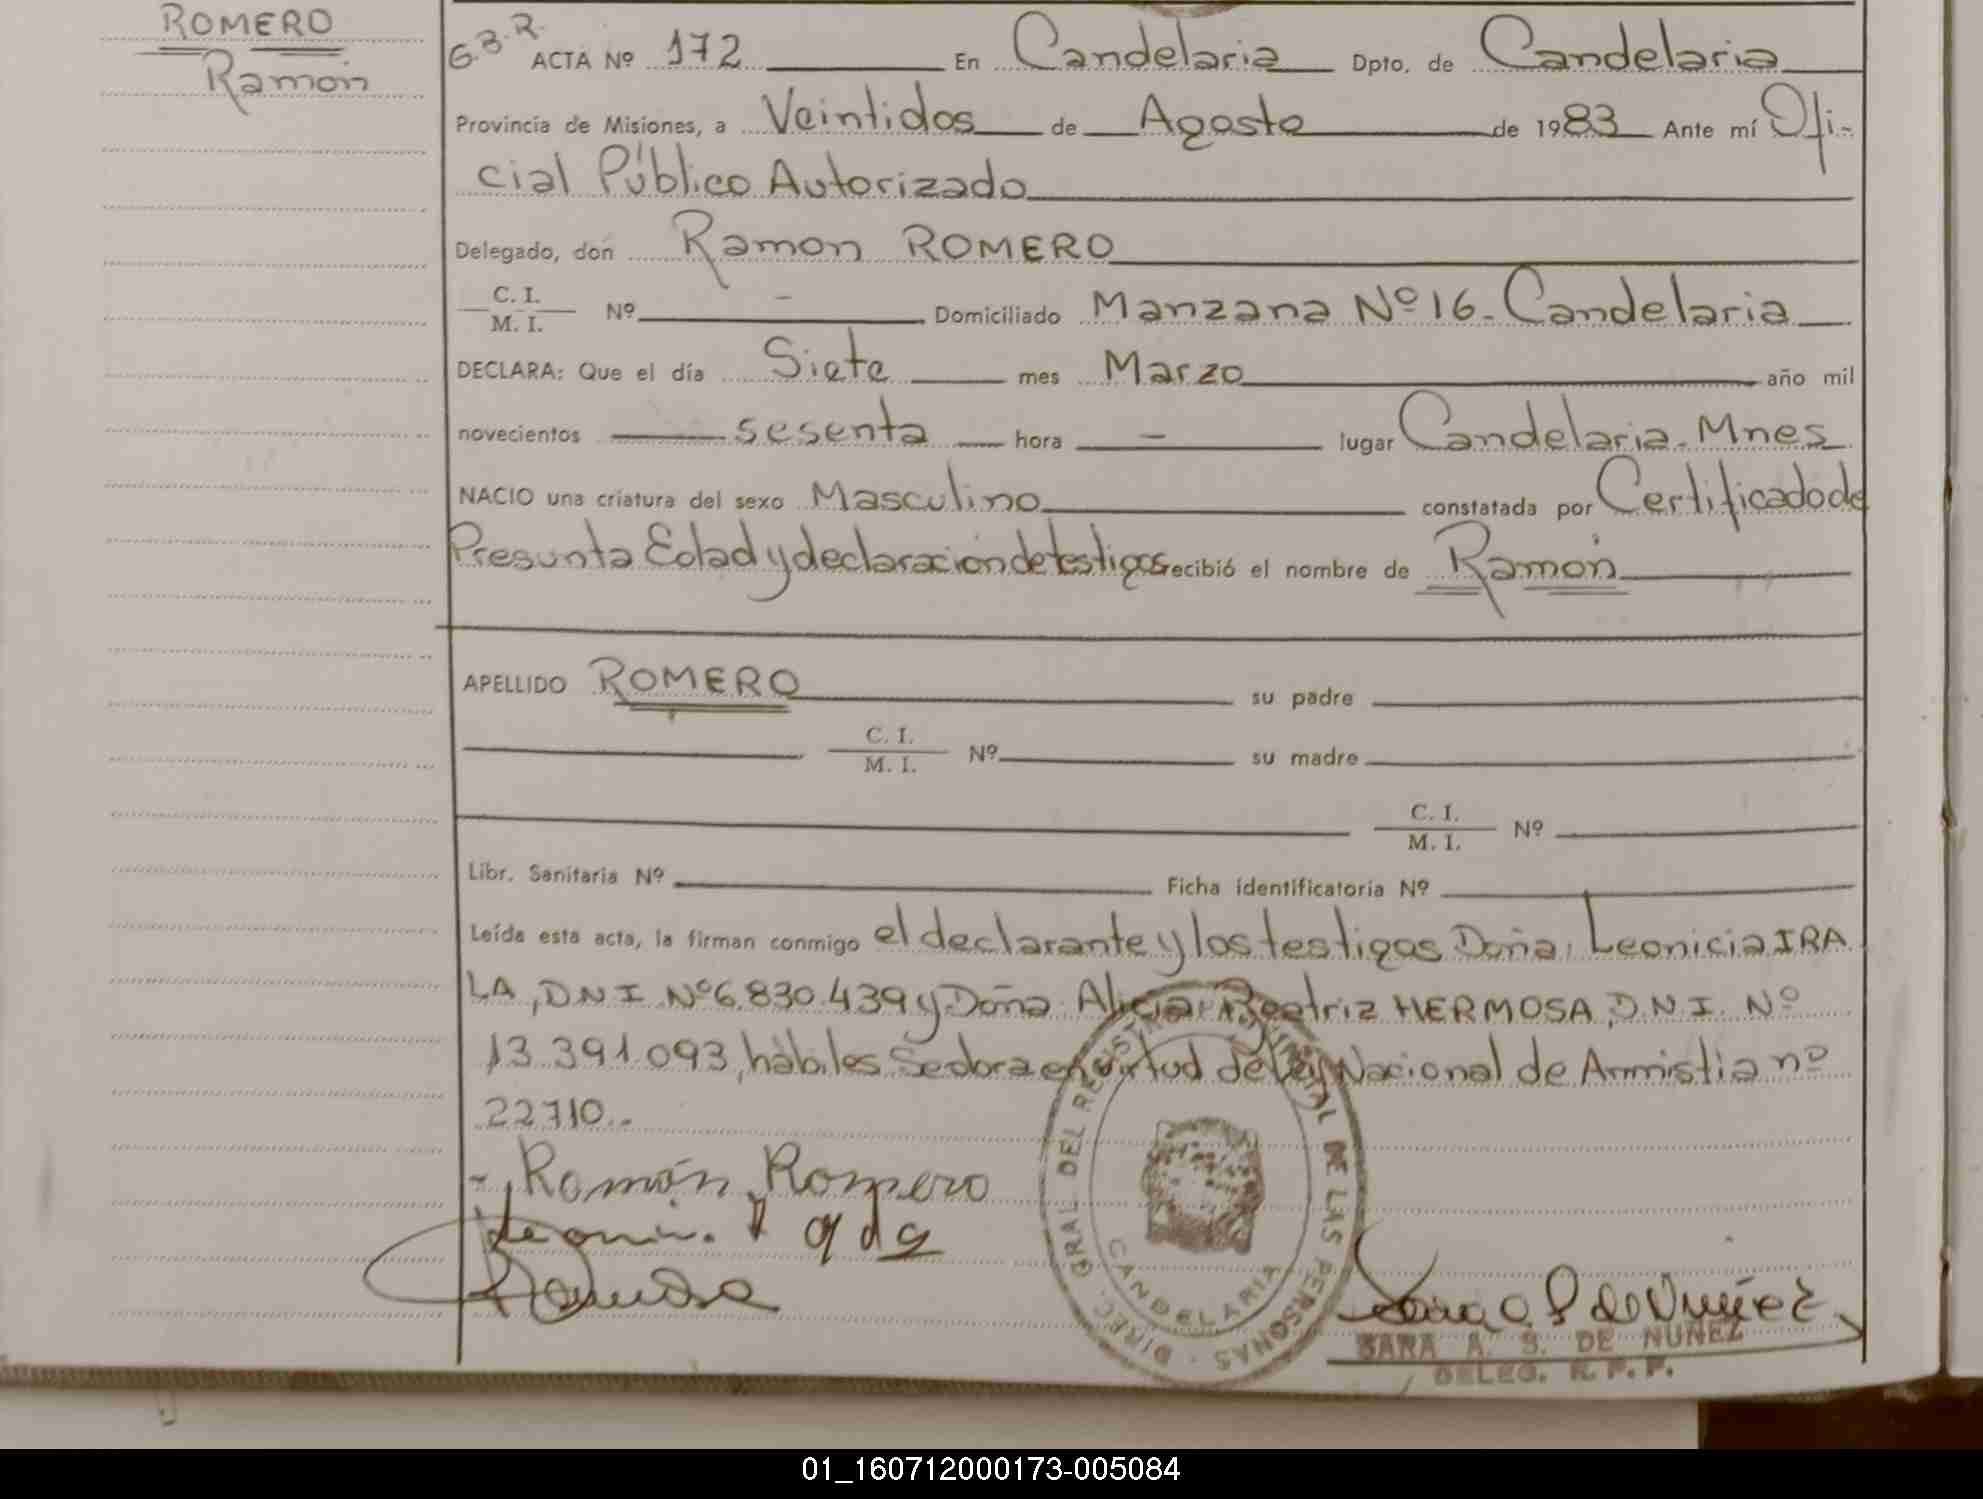 ROMERO
Ramón
G.B.R.
ACTA Nº 172 En Candelaria Dpto. de Candelaria
Provincia de Misiones, a Veintidos de Agosto de 1983 Ante mí Ofi-
cial Público Autorizado
Delegado, don Ramon ROMERO
C. I.
M. I. Nº - Domiciliado Manzana Nº 16 - Candelaria
DECLARA: Que el día Siete mes Marzo año mil
novecientos sesenta hora - lugar Candelaria - Mnes
NACIO una criatura del sexo Masculino constatada por Certificado de
Presunta Edad y declaración de testigos recibió el nombre de Ramón
APELLIDO ROMERO su padre
C. I.
M. I. Nº su madre
C. I.
M. I. Nº
Libr. Sanitaria Nº Ficha identificatoria Nº
Leída esta acta, la firman conmigo el declarante y los testigos Doña: Leonicia IRA
LA, D.N.I. Nº 6.830.439 y Doña Alicia Beatriz HERMOSA, D.N.I. Nº
13.391.093, hábiles Se obra en virtud de Ley Nacional de Amnistia nº
22710.-
- Ramón Romero
DIREC. GRAL DEL REGISTRO PROVINCIAL DE LAS PERSONAS
CANDELARIA
SARA A. S. DE NUÑEZ
DELEG. R. P. P.
01_160712000173-005084